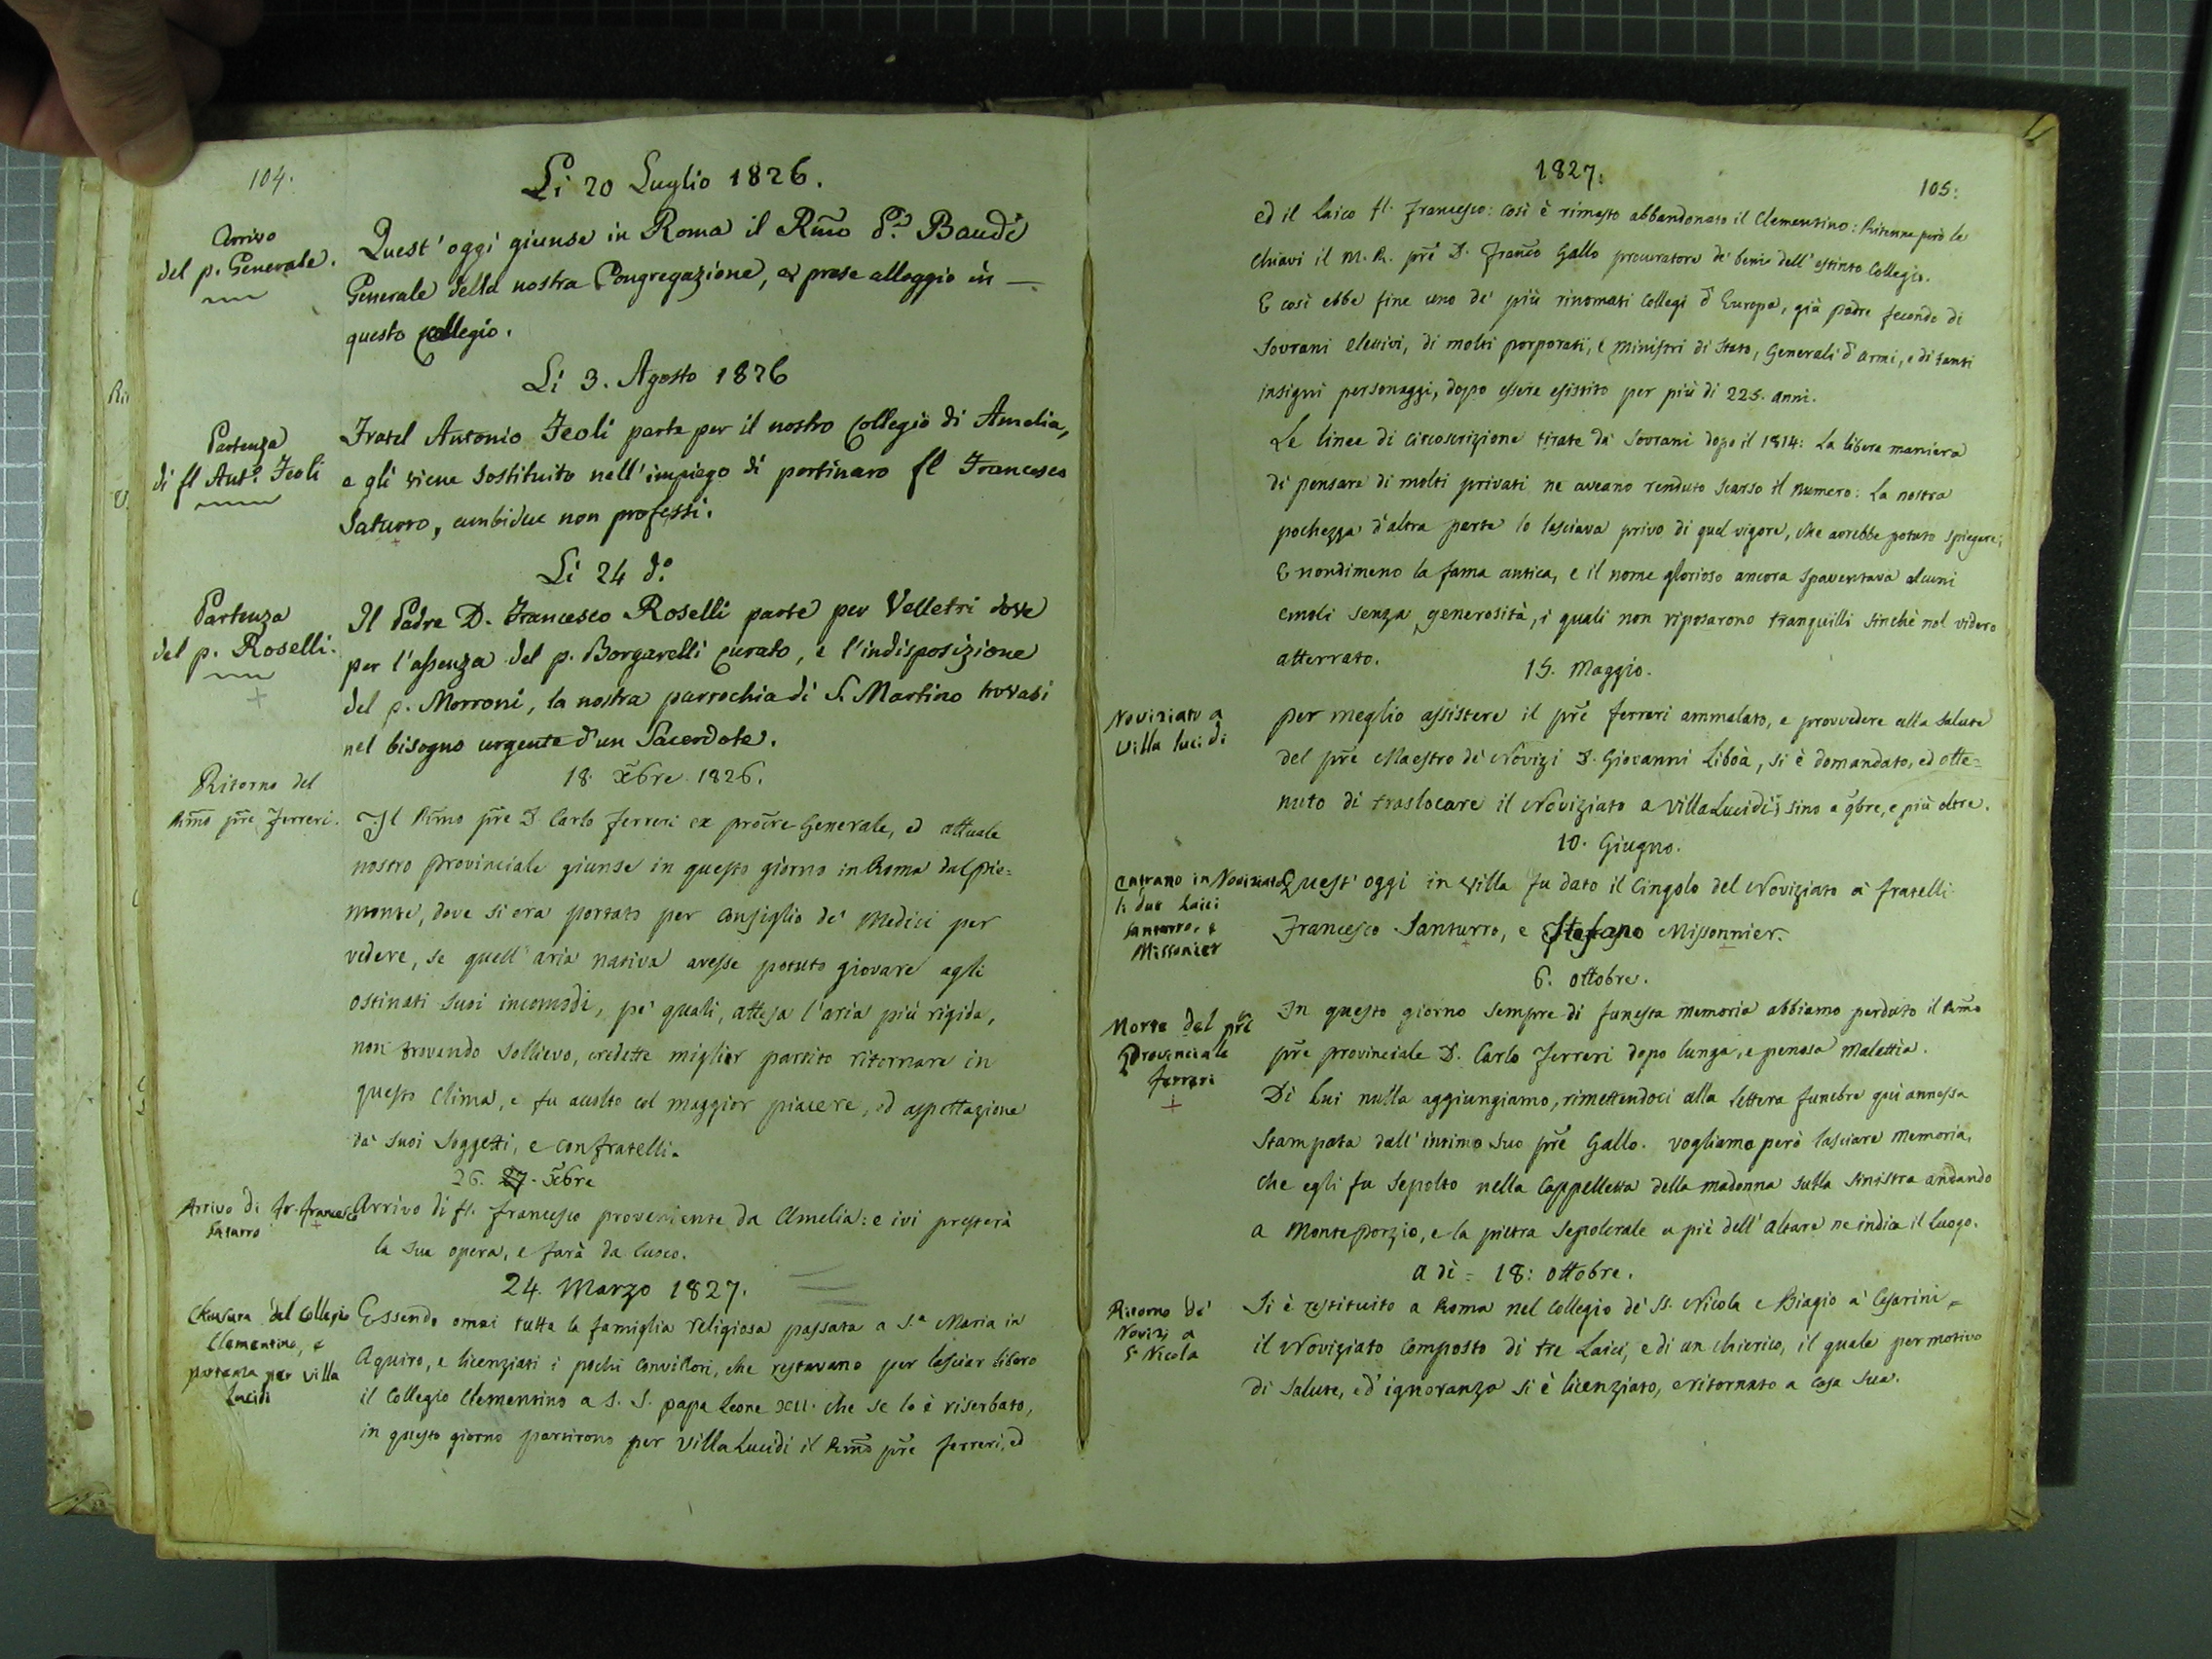 104.
Li 20 Luglio 1826.
Arrivo
del p. Generale.
Quest'oggi giunse in Roma il Rmo P. Baudi
Generale della nostra Congregazione, e prese alloggio in —
questo collegio.
Li 3. Agosto 1826
Partenza
di fl Ant.o Feoli
Fratel Antonio Feoli parte per il nostro Collegio di Amelia,
e gli viene sostituito nell'impiego di portinaro fl Francesco
Saturro, ambidue non professi.
Li 24 d.o
Partenza
del p. Roselli.
Il Padre D. Francesco Roselli parte per Velletri dove
per l'assenza del p. Borgarelli curato, e l'indisposizione
del p. Morroni, la nostra parrochia di S. Martino trovasi
nel bisogno urgente d'un Sacerdote.
18. Xbre 1826.
Ritorno del
Rmo pre Ferreri.
Il Rmo pre D. Carlo Ferreri ex procre Generale, ed attuale
nostro provinciale giunse in questo giorno in Roma dal pie=
monte, dove si era portato per consiglio de' Medici per
vedere, se quell'aria nativa avesse potuto giovare agli
ostinati suoi incomodi, pe' quali, attesa l'aria più rigida,
non trovando sollievo, credette miglior partito ritornare in
questo Clima, e fu accolto col maggior piacere, ed aspettazione
da' suoi Soggetti, e confratelli.
26. 27. Xbre
Arrivo di fr. francesco
Saturro
Arrivo di fl. francesco proveniente da Amelia: e ivi presterà
la sua opera, e farà da Cuoco.
24. Marzo 1827.
Chiusura del Collegio
Clementino, e
partenza per villa
Lucidi
Essendo omai tutta la famiglia religiosa passata a S.a Maria in
Aquiro, e licenziati i pochi Convittori, che restavano per lasciar libero
il Collegio Clementino a S. S. papa Leone XII. che se lo è riserbato,
in questo giorno partirono per Villa Lucidi il Rmo pre ferreri, ed
1827.
105.
ed il Laico fl. francesco: così è rimasto abbandonato il Clementino: Ritenne però le
chiavi il M. R. pre D. Franco Gallo procuratore de' beni dell'estinto Collegio.
E così ebbe fine uno de' più rinomati Collegi d'Europa, già padre fecondo di
Sovrani elettivi, di molti porporati, e Ministri di Stato, Generali d'armi, e di tanti
insigni personaggi, dopo essere esistito per più di 225. anni.
Le linee di circoscrizione tirate da' Sovrani dopo il 1814: La libera maniera
di pensare di molti privati ne aveano renduto scarso il numero: La nostra
pochezza d'altra parte lo lasciava privo di quel vigore, che avrebbe potuto spiegare;
E nondimeno la fama antica, e il nome glorioso ancora spaventava alcuni
emoli senza generosità, i quali non riposarono tranquilli sinchè nol videro
atterrato.
15. Maggio.
Noviziato a
Villa lucidi
per meglio assistere il pre ferreri ammalato, e provvedere alla salute
del pre Maestro de' Novizi D. Giovanni Libòa, si è domandato, ed otte=
nuto di traslocare il Noviziato a Villa Lucidi, sino a 9bre, e più oltre.
10. Giugno.
Entrano in Noviziato
li due Laici
Santurro, e
Missonier
Quest'oggi in Villa fu dato il Cingolo del Noviziato a' fratelli
Francesco Santurro, e Stefano Missonnier.
6. ottobre.
Morte del pre
Provinciale
ferreri
In questo giorno sempre di funesta memoria abbiamo perduto il Rmo
pre provinciale D. Carlo Ferreri dopo lunga, e penosa malattia.
Di Lui nulla aggiungiamo, rimettendoci alla lettera funebre qui annessa
Stampata dall'intimo suo pre Gallo. vogliamo però lasciare memoria,
che egli fu sepolto nella Cappelletta della madonna sulla sinistra andando
a Monteporzio, e la pietra sepolcrale a piè dell'altare ne indica il luogo.
a dì = 18: ottobre.
Ritorno de'
Novizi a
S. Nicola
Si è restituito a Roma nel Collegio de' SS. Nicola e Biagio a' Cesarini =
il Noviziato composto di tre Laici, e di un chierico, il quale per motivo
di salute, ed ignoranza si è licenziato, e ritornato a casa sua.